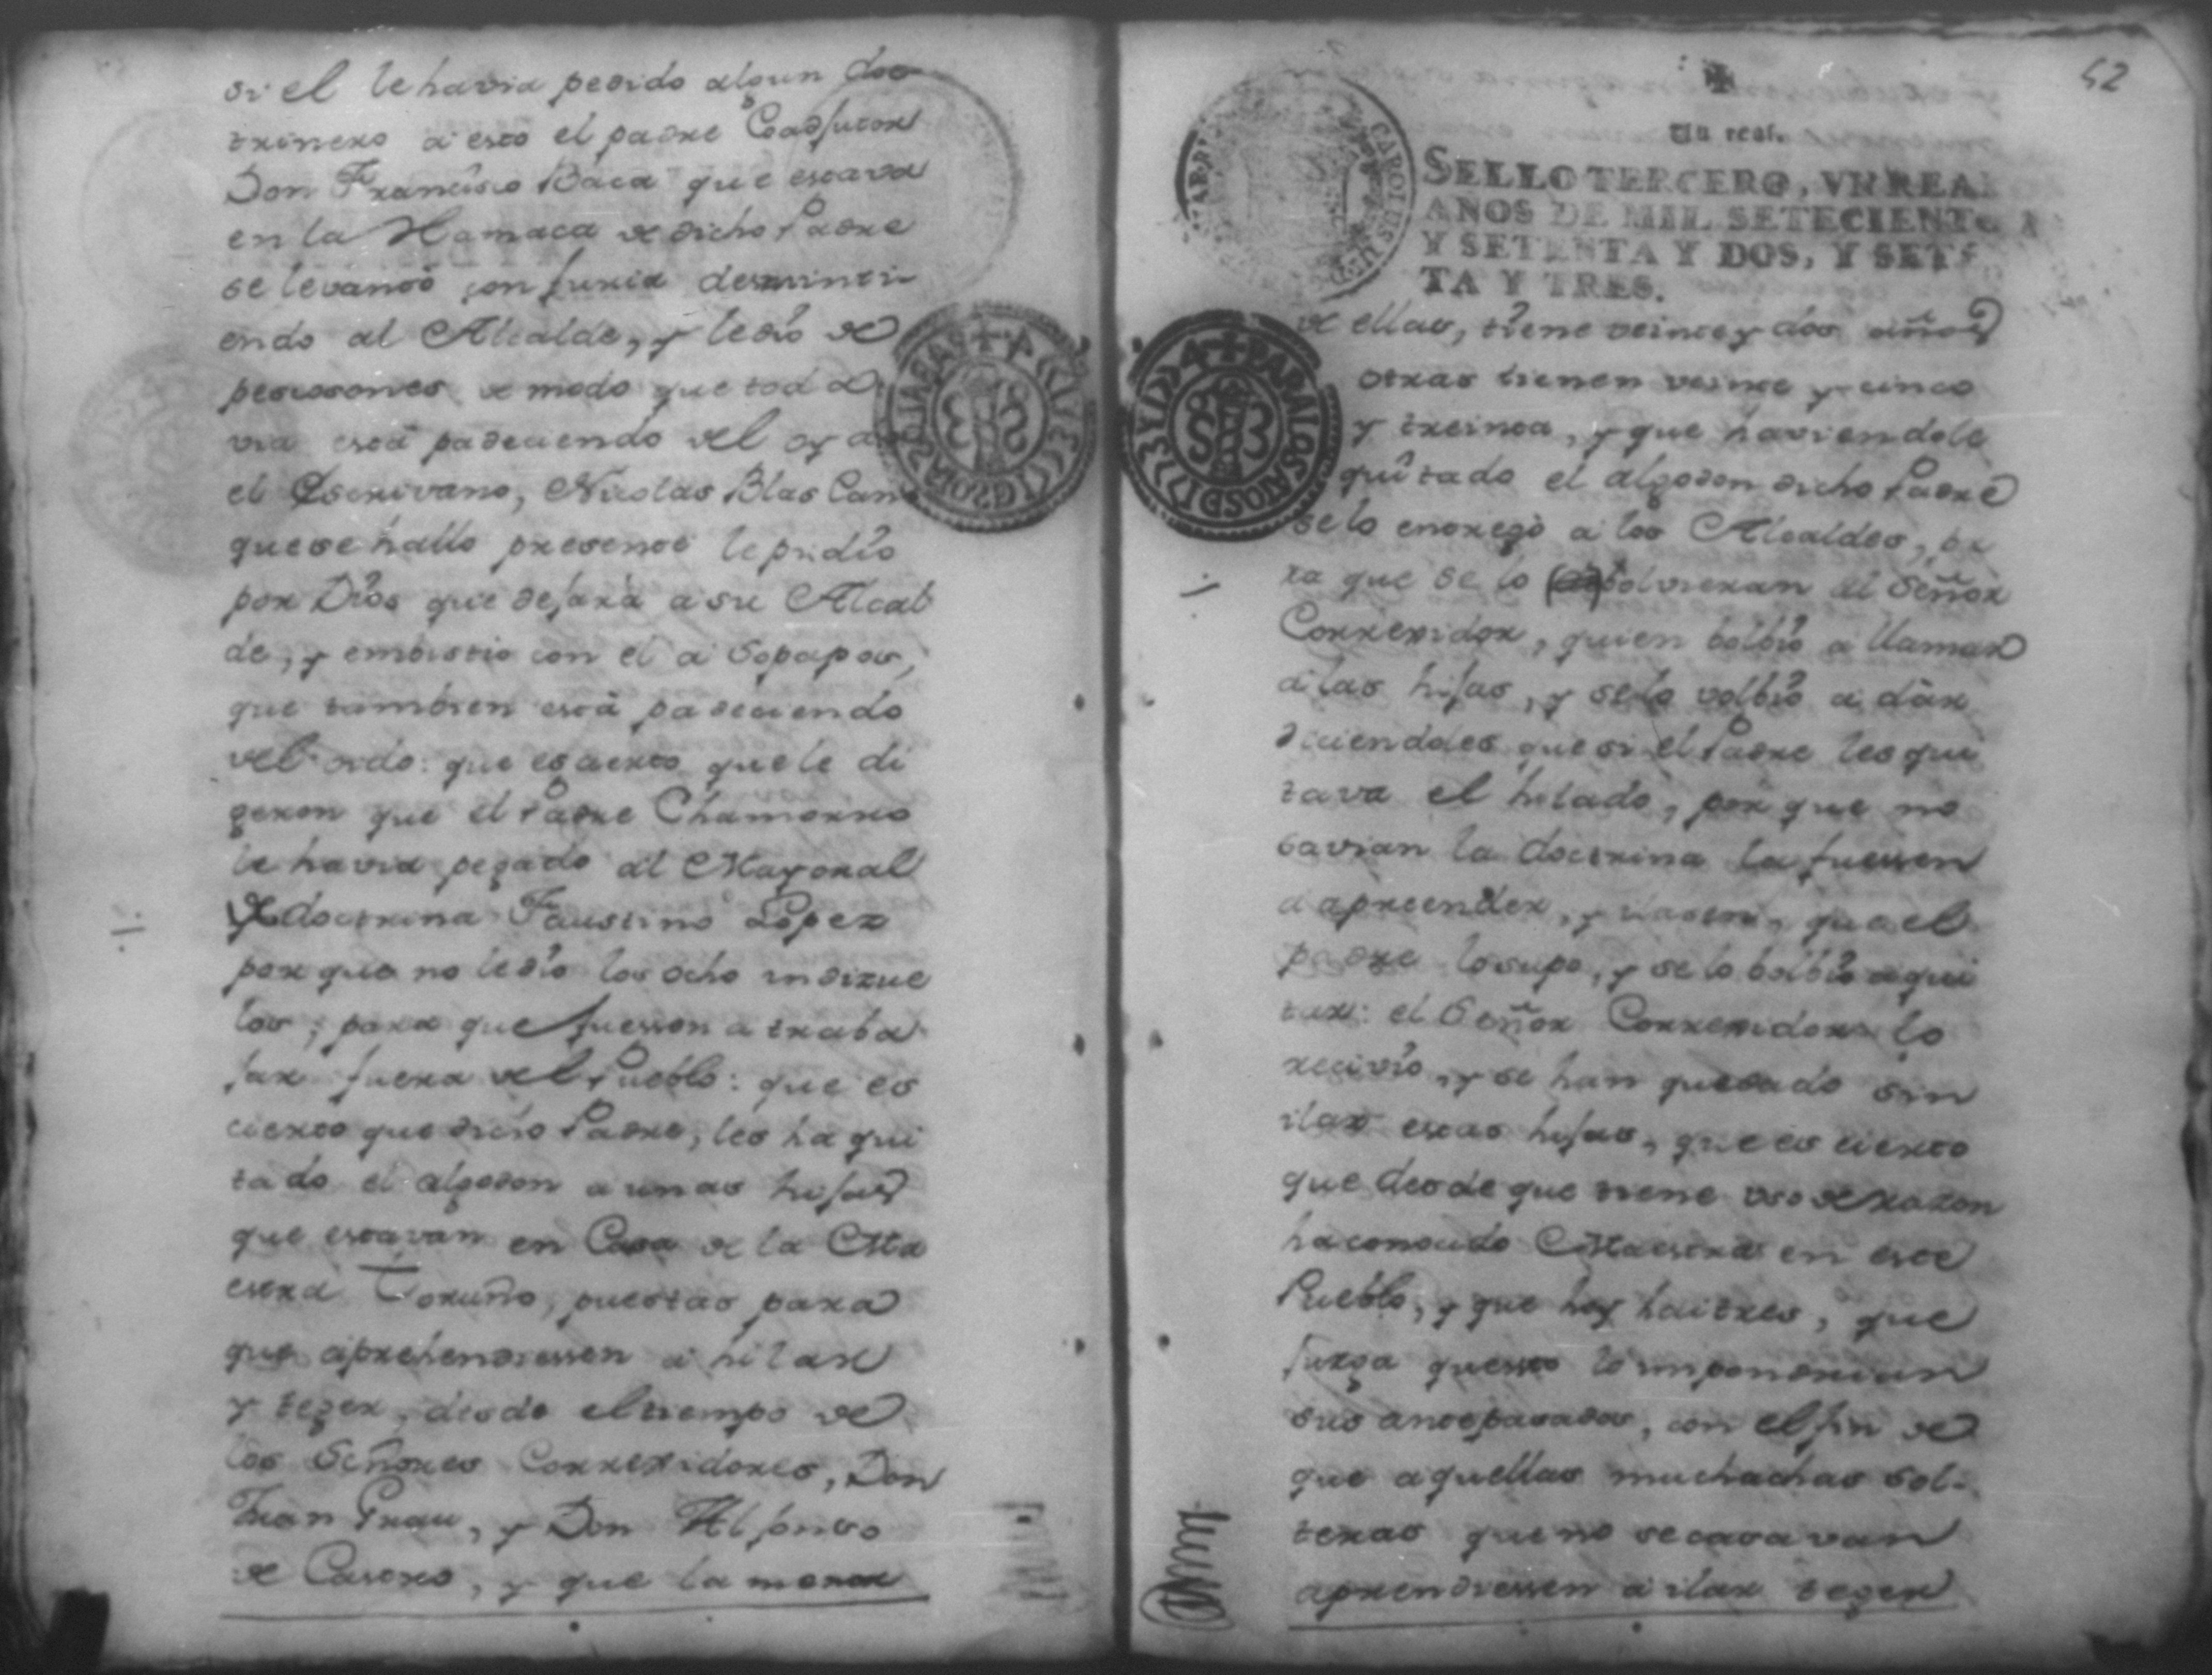 si el le havia pedido algun doc
trinero a esto el padre Coadjutor
Don Francisco Baca que estava
en la Hamaca de dicho Padre
se levantó con furia desminti
endo al Alcalde, y le dio de
pescosones de modo que toda
via está padeciendo del oydo
el Escrivano, Nicolas Blas Cano
que se halló presente le pidio
por Dios que dejara a su Alcal
de, y embistio con el a Sopapos,
que tambien está padeciendo
del oido: que es cierto que le di
geron que el Padre Chamorro
le havia pegado al Mayoral
de doctrina Faustino Lopez
por que no le dio los ocho indizue
los, para que fuessen a traba
jar fuera del Pueblo: que es
cierto que dicho Padre, les ha qui
tado el algodon a unas hijas
que estavan en Casa de la Ma
estra Toruño, puestas para
que aprehendiessen a hilar
y teger, desde el tiempo de
los Señores Correxidores, Don
Juan Grau, y Don Alfonso
de Casero, y que la menor
52
Un real.
SELLO TERCERO, VN REAL
AÑOS DE MIL SETECIENTOS
Y SETENTA Y DOS, Y SETEN
TA Y TRES.
CAROLUS III D
PARA LOS AÑOS D 1773 Y 1774
de ellas, tiene veinte y dos años
otras tienen veinte y cinco
y treinta, y que haviendole
quitado el algodon dicho Padre
se lo entregó a los Alcaldes, pa
ra que se lo bolvieran al Señor
Correxidor, quien bolbio a llamar
a las hijas, y se lo volbio a dàr
diciendoles que si el Padre les qui
tava el hilado, por que no
savian la doctrina la fuessen
a apreender, y ilasen, que el
padre lo supo, y se lo bolbio a qui
tar: el Señor Correxidor lo
recivio, y se han quedado sin
ilar estas hijas, que es cierto
que desde que tiene uso de razon
ha conocido Maestras en este
Pueblo, y que hoy hai tres, que
juzga que esto lo impondrian
sus antepasados, con el fin de
que aquellas muchachas sol-
teras que no se casavan
aprendiessen a ilar teger